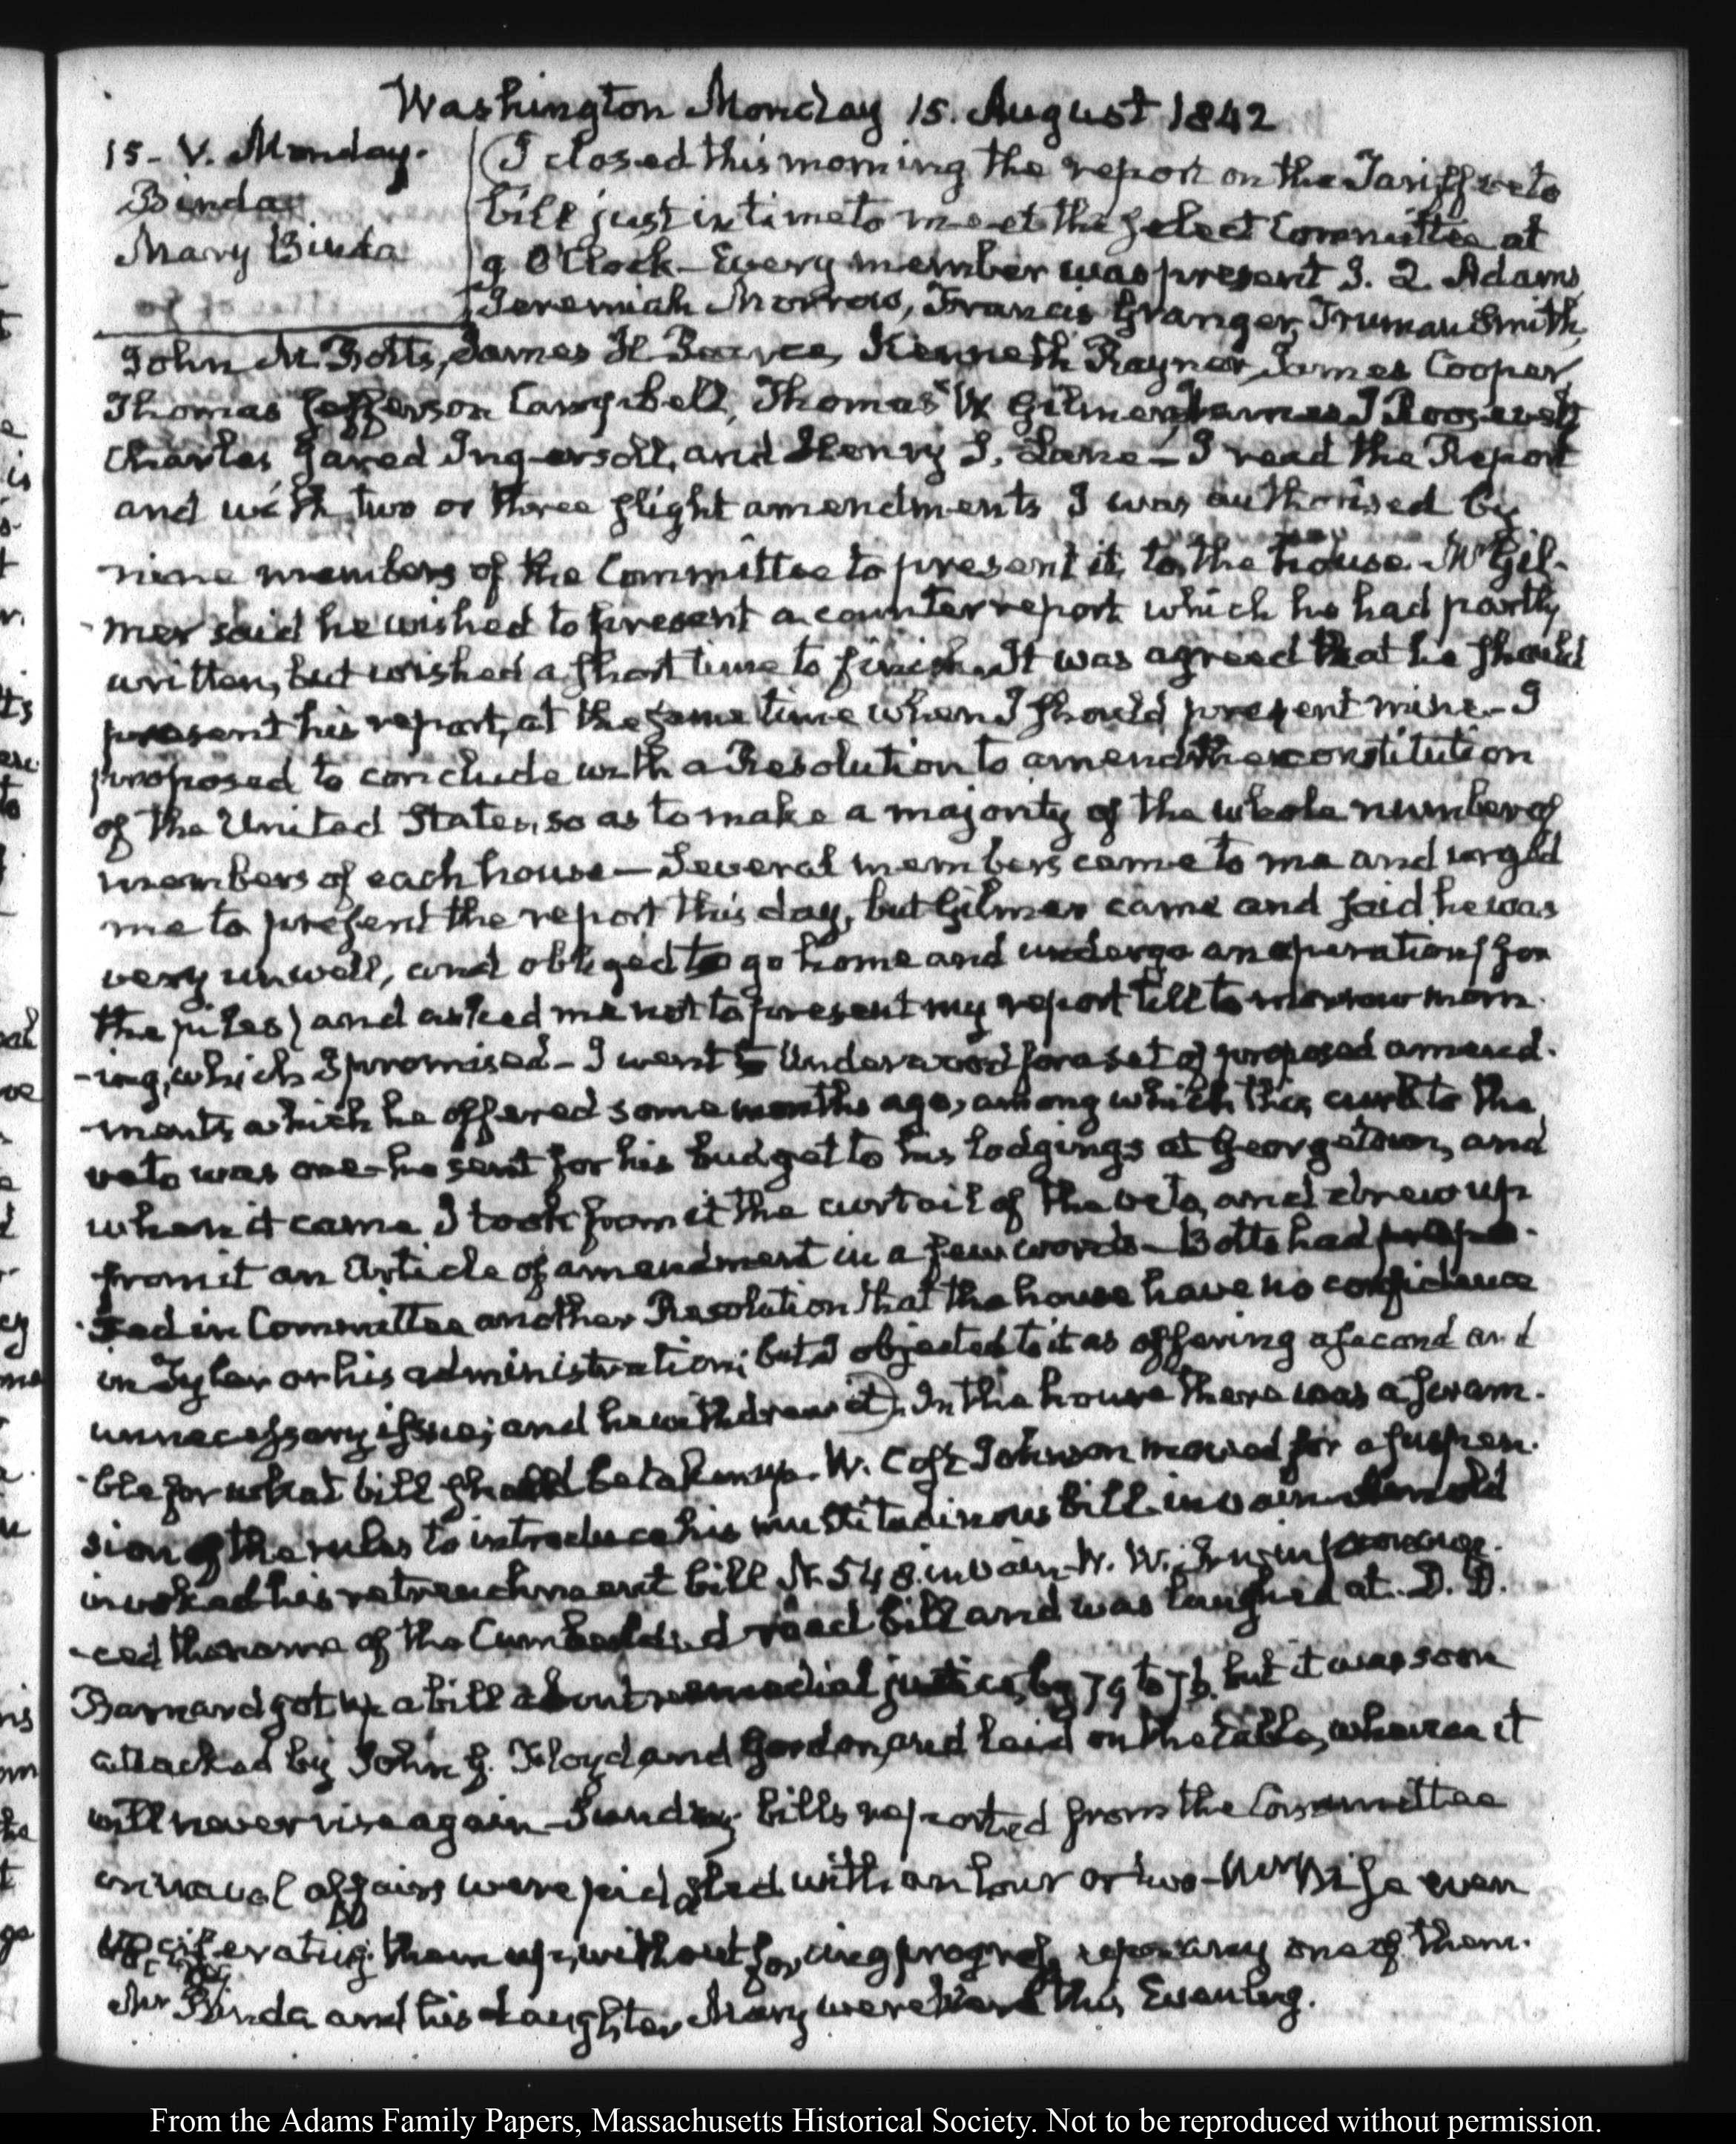 Washington Monday 15. August 1842
15 - V. Monday.
Binda
Mary Binda
I closed this morning the report on the Tariff veto
bill just in time to meet the select Committee at
9 O'Clock - Every member was present J. Q. Adams
Jeremiah Morrow, Francis Granger, Truman Smith,
John M. Botts, James A Pearce, Kenneth Rayner, James Cooper,
Thomas Jefferson Campbell, Thomas W Gilmer, James I Roosevelt
Charles Jared Ingersoll, and Henry S. Lane - I read the Report
and with two or three slight amendments I was authorised by
nine members of the Committee to present it to the house. Mr Gil-
-mer said he wished to present a counter report which he had partly
written, but wished a short time to finish. It was agreed that he should
present his report, at the same time when I should present mine - I
proposed to conclude with a Resolution to amend the constitution
of the United States, so as to make a majority of the whole number of
members of each house - Several members came to me and urged
me to present the report this day, but Gilmer came and said he was
very unwell, and obliged to go home and undergo an operation (for
the piles) and asked me not to present my report till to morrow morn-
-ing, which I promised - I went to Underwood for a set of proposed amend-
-ments which he offered some months ago, among which this curb to the
veto was one - he sent for his budget to his lodgings at Georgetown, and
when it came I took from it the curtail of the veto, and drew up
from it an Article of amendment in a few words - Botts had propo-
-sed in Committee another Resolution that the house have no confidence
in Tyler or his administration; but I objected to it as offering a second and
unnecessary issue; and he withdrew it). In the house there was a scram-
-ble for what bill should be taken up. W. Cost Johnson moved for a suspen-
sion of the rules to introduce his multitudinous bill in vain - Arnold
invoked his retrenchment bill N. 548. in vain - W. W. Irwin pronoun-
-ced the name of the Cumberland road bill and was laughed at. D. D.
Barnard got up a bill about remedial justice, by 79 to 76. but it was soon
attacked by John G. Floyd, and Gordon, and laid on the table, whence it
will never rise again - Sundry bills reported from the Committee
on naval affairs were piddled with an hour or two - Mr Wise even
vociferating them up, without forcing progress upon any one of them.
Mr Binda and his daughter Mary were here this Evening.
From the Adams Family Papers, Massachusetts Historical Society. Not to be reproduced without permission.